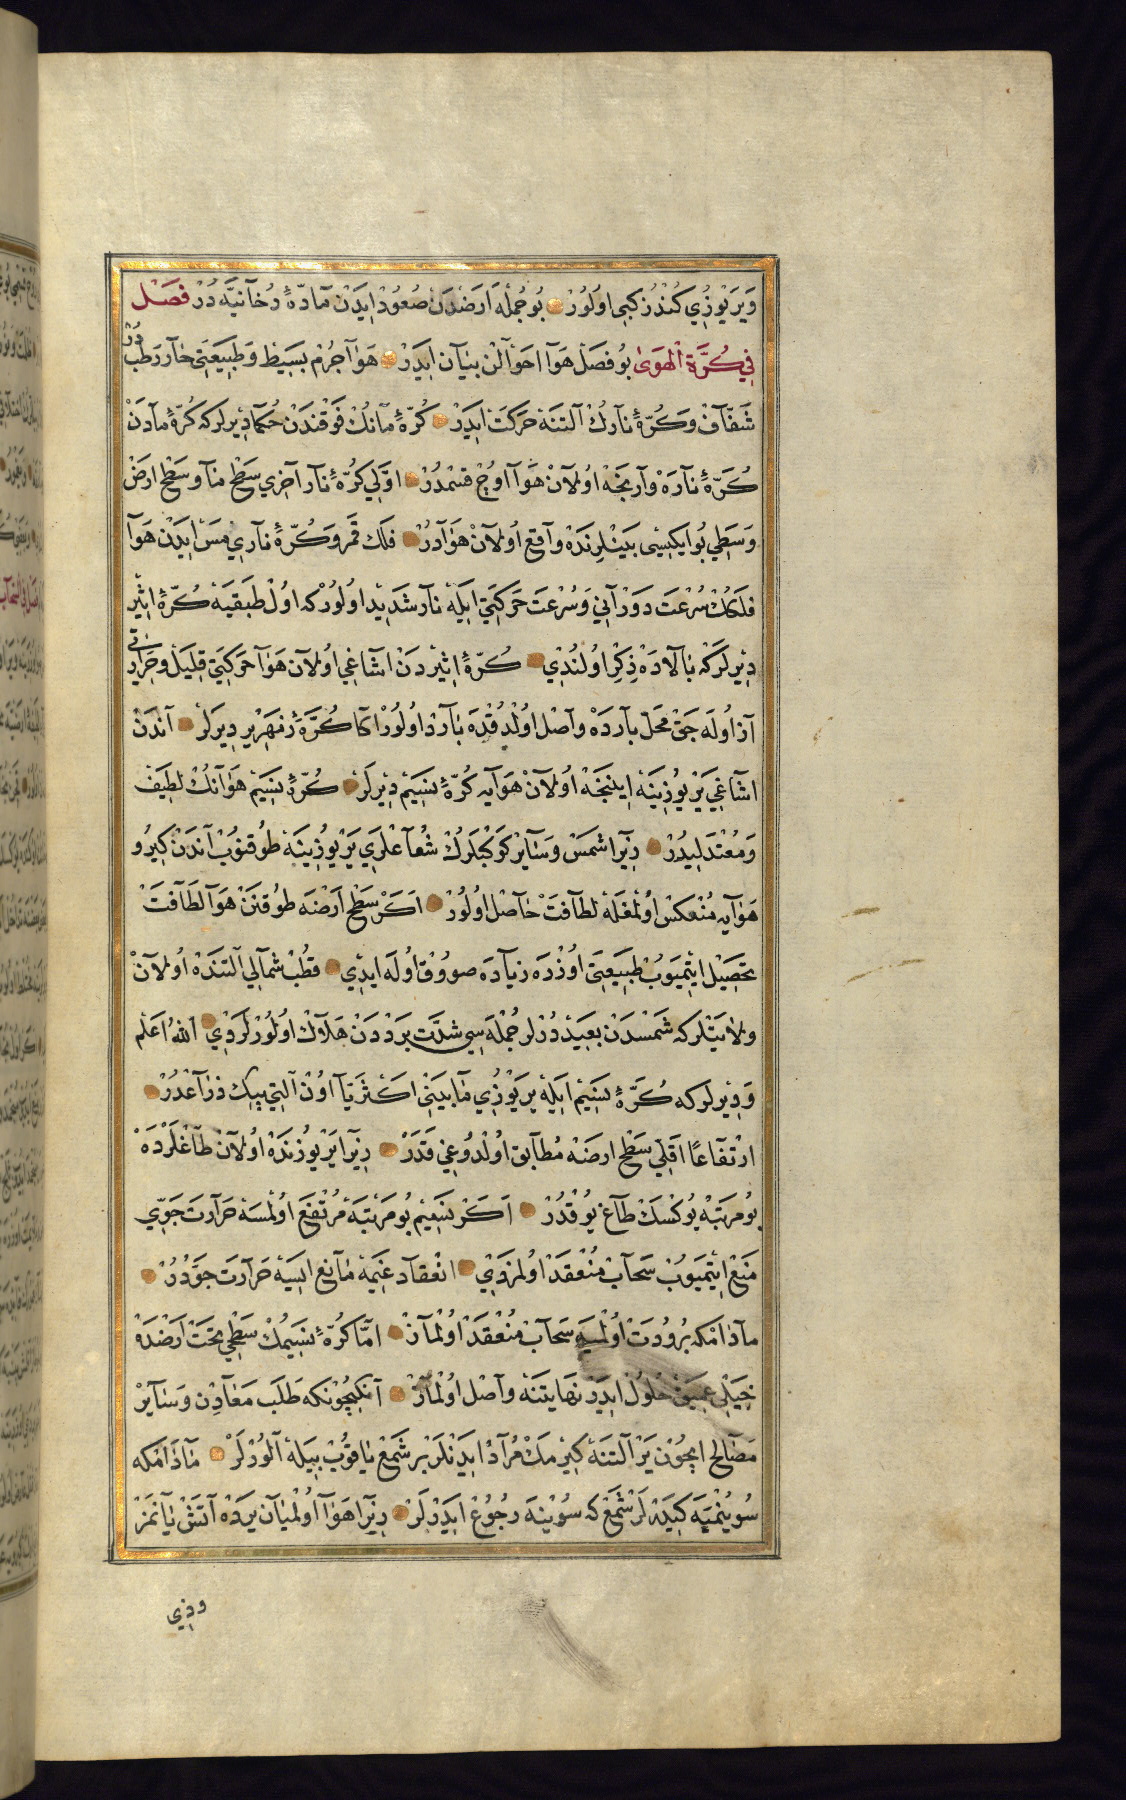 وَيَريُوزِي كُنْدُز كبي اولُور بُو جُمْلَه اَرَضْدَنْ صُعُود ايدَنْ مَادّهٔ دُخَانيَّه دُرْ فَصَلْ
فِي كُرَّة الْهَوَى بُو فصَلْ هَوَا احوالن بيَان ايدَرْ هَوَا جُرْم بسَيط وَطبيعَتي حَار رَطْب دُرْ
شَفَّافْ وَكُرّهٔ نَارڭ آلتنَه حَرَكَت ايدَرْ كُرّهٔ مانك فَوْقندَنْ حُكَما ديرلركه كُرّهٔ مادَنْ
كُرّهٔ نَارَه وَاريجَه اولانْ هَوَا اوچ قسْمدُرْ اوَّلي كُرّهٔ نَار آخري سَطْح مَا وسَطح ارَضْ
وَسَطي بُو ايكيسي بَيْنلرنَدَه وَاقع اولانْ هَوَادُرْ فَلَك قَمَر وَكُرّهٔ نَاري مَسّ ايدَنْ هَوَا
فلَكڭ سُرْعَت دَوَرَاني وَسُرْعَت حَرَكَتي ايلَه نَار شَديد اولُور كه اولْ طَبَقَيَه كُرّهٔ اثير
ديرلَر كه بَالادَه ذكر اولندي كُرّهٔ اثيردَنْ اشَاغي اولان هَوَا حَركتي قليل وحَرَارَتي
آز اولَه جَق محَلّ بَاردَه وَاصل اولدُقدَه بَارد اولُور اكَا كُرَّهٔ زمهرير ديرلَر آندَنْ
اشَاغي يَر يُوزينَه اينجَه اولانْ هَوَايه كُرّهٔ نسَيم ديرلَر كُرّهٔ نسَيم هَوَانڭ لَطيف
وَمُعْتَدليدُرْ زيرَا شمَسْ وَسَاير كَوكبلرڭ شُعَاعْلري يَر يُوزينَه طوقنُوب آندَنْ كيرُو
هَوَايه مُنْعَكسْ اولمغلَه لَطَافَتْ حَاصل اولُورْ اكَرْ سَطح ارَضَه طوقنَنْ هَوَا لَطَافَتْ
تحصيل ايتميوبْ طبيعتي اوزره زيَاده صووُق اولَه ايدي قطبْ شمَالي آلتنَدَه اولان
ولايتلر كه شمَسْدَنْ بعَيددُرلر جُمْلَه سي شدّت بَرددَنْ هَلاك اولورلَرْدي اللهُ اعَلَم
وَديرلَر كه كُرّهٔ نسَيم ايلَه يَر يُوزي مَابَيني اكثريَا اونْ آلتي بيك ذراعدُرْ
ارْتفَاعًا اَقلّي سَطح ارضَه مُطَابق اولدوغي قَدَرْ زيرَا يَر يُوزنَدَه اولانْ طَاغلَرْدَه
بُو مرتبَه يُوكْسك طَاغ يُوقدُرْ اَكَر نسَيم بُو مَرتبَه مُرْتَفعْ اولمسَه حَرَارت جَوّي
مَنع ايتميوب سَحَابْ مُنْعقَدْ اولمزدي انْعقَاد غَيمَه مَانع ايسَه حَرَارَت جَوّدُرْ
مَادَامكه بُرُودَت اولميَه سَحَابْ مُنْعَقَدْ اولمازْ امَّا كُرّهٔ نسَيمڭ سَطحي تحتَ اَرْضدَه
خيلي عميق حُلولْ ايدَرْ نهَايتنَه وَاصل اولمازْ آنكيچونكه طَلَب مَعَادن وَسَاير
مَصَالح ايچُون يَر آلتنَه كيرمك مُرَاد ايدنلَر بر شمع يَاقُوب بيلَه آلورلَرْ مَادَامكه
سُوينميَه كيدَرلَر شمَع كه سُوينَه رجُوع ايدَرلَر زيرَا هَوَا اولميَان يردَه آتش يَانمَز
ودَخي